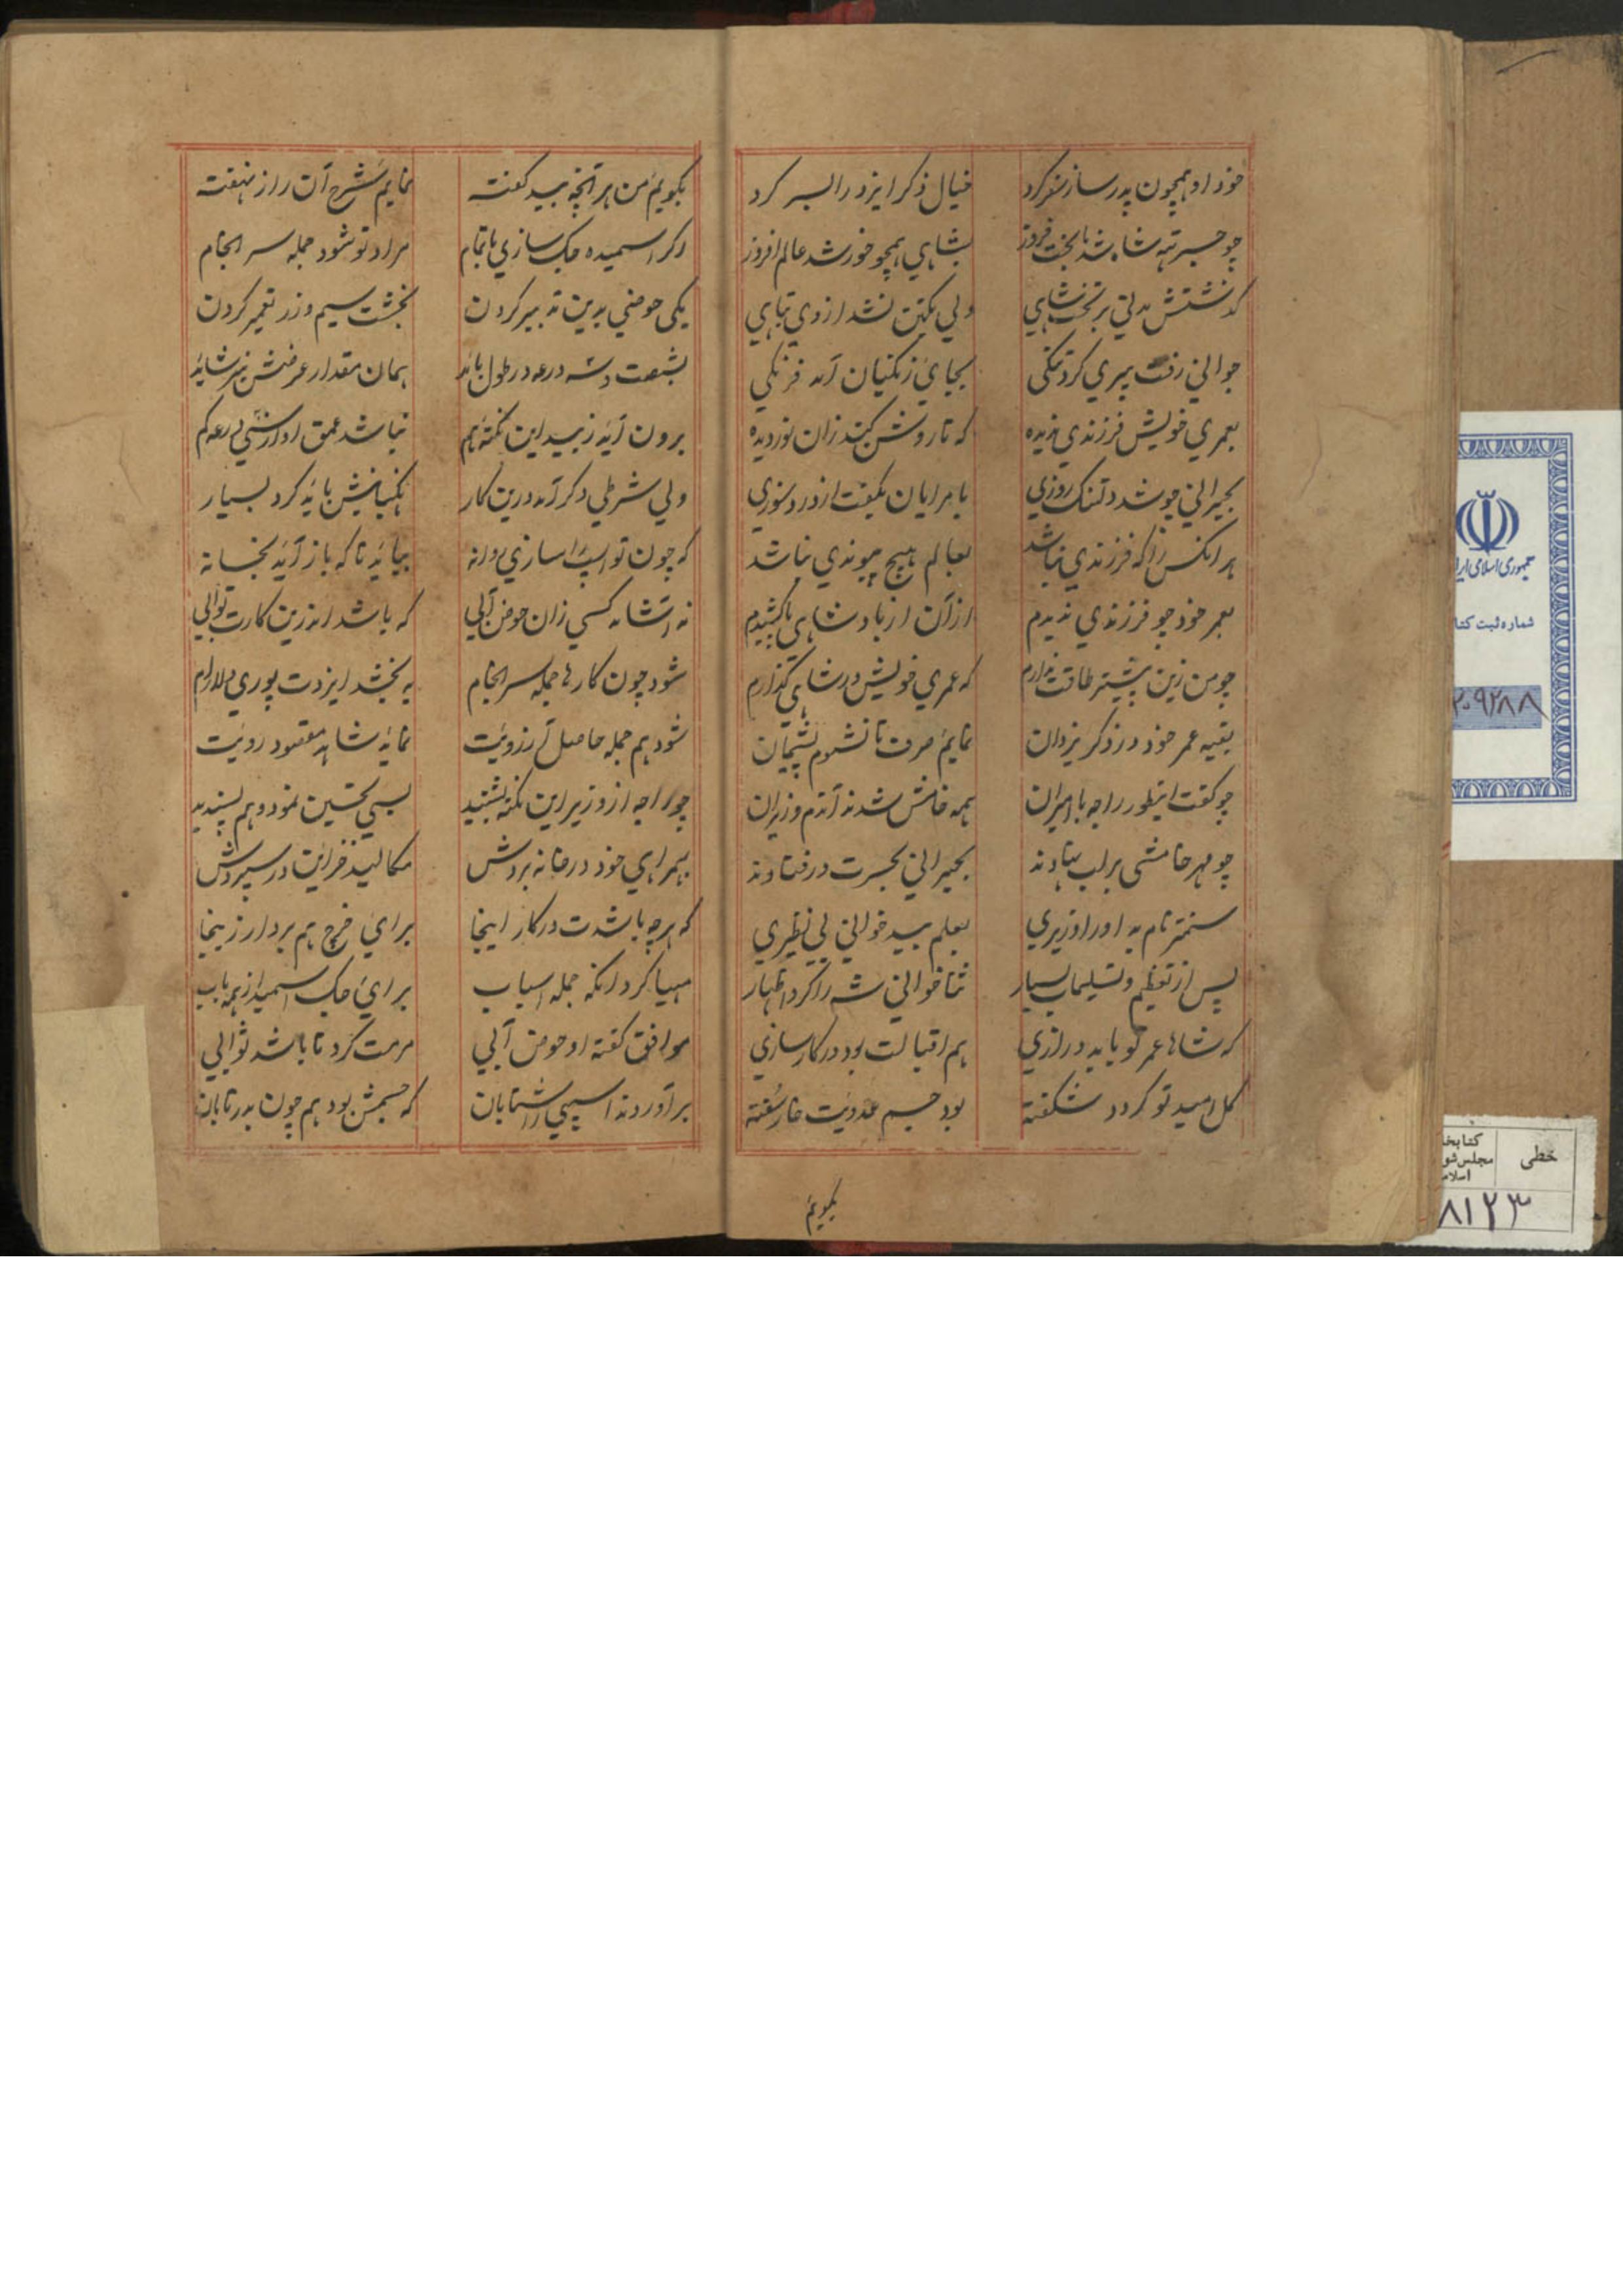 خود او همچون پدر ساز سفر کرد
خیال ذکر ایزد را بسر کرد
چو جسرتهه شاه شد با بخت فروز
بشاهی همچو خورشد عالم افروز
کذشتش مدتی بر تخت شاهی
ولی یکتن نشد از وی تباهی
جوانی رفت پیری کرد تنکی
بجای زنکیان آمد فرنکی
بعمری خویش فرزندی ندیده
که تا روشن کند زان نور دیده
بحیرانی چو شد دلتنک روزی
بامرایان بکفت از درد سوزی
هر انکس را که فرزندی نباشد
بعالم هیچ پیوندی نباشد
بعمر خود چو فرزندی ندیدم
از آن از بادشاهی پا کشیدم
چو من زین پیشتر طاقت ندارم
که عمری خویش در شاهی کذارم
بقیه عمر خود در ذکر یزدان
نمایم صرف تا نشوم پشیمان
چو کفت اینطور راجه با امیران
همه خامش شدند آندم وزیران
چو مهر خامشی بر لب نهادند
بحیرانی بحسرت در فتادند
سنمتر نام بد او را وزیری
بعلم بید خوانی بی نظیری
پس از تعظیم و تسلیمات بسیار
ثنا خوانی شه را کرد اظهار
که شاها عمر تو باید درازی
هم اقبالت بود در کار سازی
کل امید تو کردد شکفته
بود جسم عدویت خار سفته
بکویم
بکویم من هر آنچه بید کفته
نمایم شرح آن راز نهفته
اکر اسمیده جک سازی باتمام
مراد تو شود جمله سر انجام
یکی حوضی بدین تدبیر کردن
بخشت سیم و زر تعمیر کردن
بشصت و سه درعه در طول باید
همان مقدار عرضش نیز شاید
برون آید ز بید این نکته هم
نباشد عمق او از سی درعه کم
ولی شرطی دکر آمد درین کار
نکهبانیش باید کرد بسیار
که چون تو اسپ را سازی روانه
بیاید تا که باز آید بخانه
نه آشامد کسی زان حوض آبی
که باشد اندرین کارت ثوابی
شود چون کارها جمله سر انجام
به بخشد ایزدت پوری دلارام
شود هم جمله حاصل آرزویت
نماید شاهد مقصود رویت
چو راجه از وزیر این نکته بشنید
بسی تحسین نمود و هم پسندید
بهمراهی خود در خانه بردش
مکالید خزاین در سپردش
که هر چه باشدت در کار اینجا
برای خرچ هم بردار زینجا
مهیا کرد انکه جمله اسباب
برای جک اسمید از همه باب
موافق کفته او حوض آبی
مرمت کرد تا باشد ثوابی
بر آوردند اسپی را شتابان
که جسمش بود هم چون بدر تابان
جمهوری اسلامی ایرا
شماره ثبت کتا
۲۰۹۲۸۸
خطی
کتابخا
مجلس شو
اسلام
۸۱۲۳